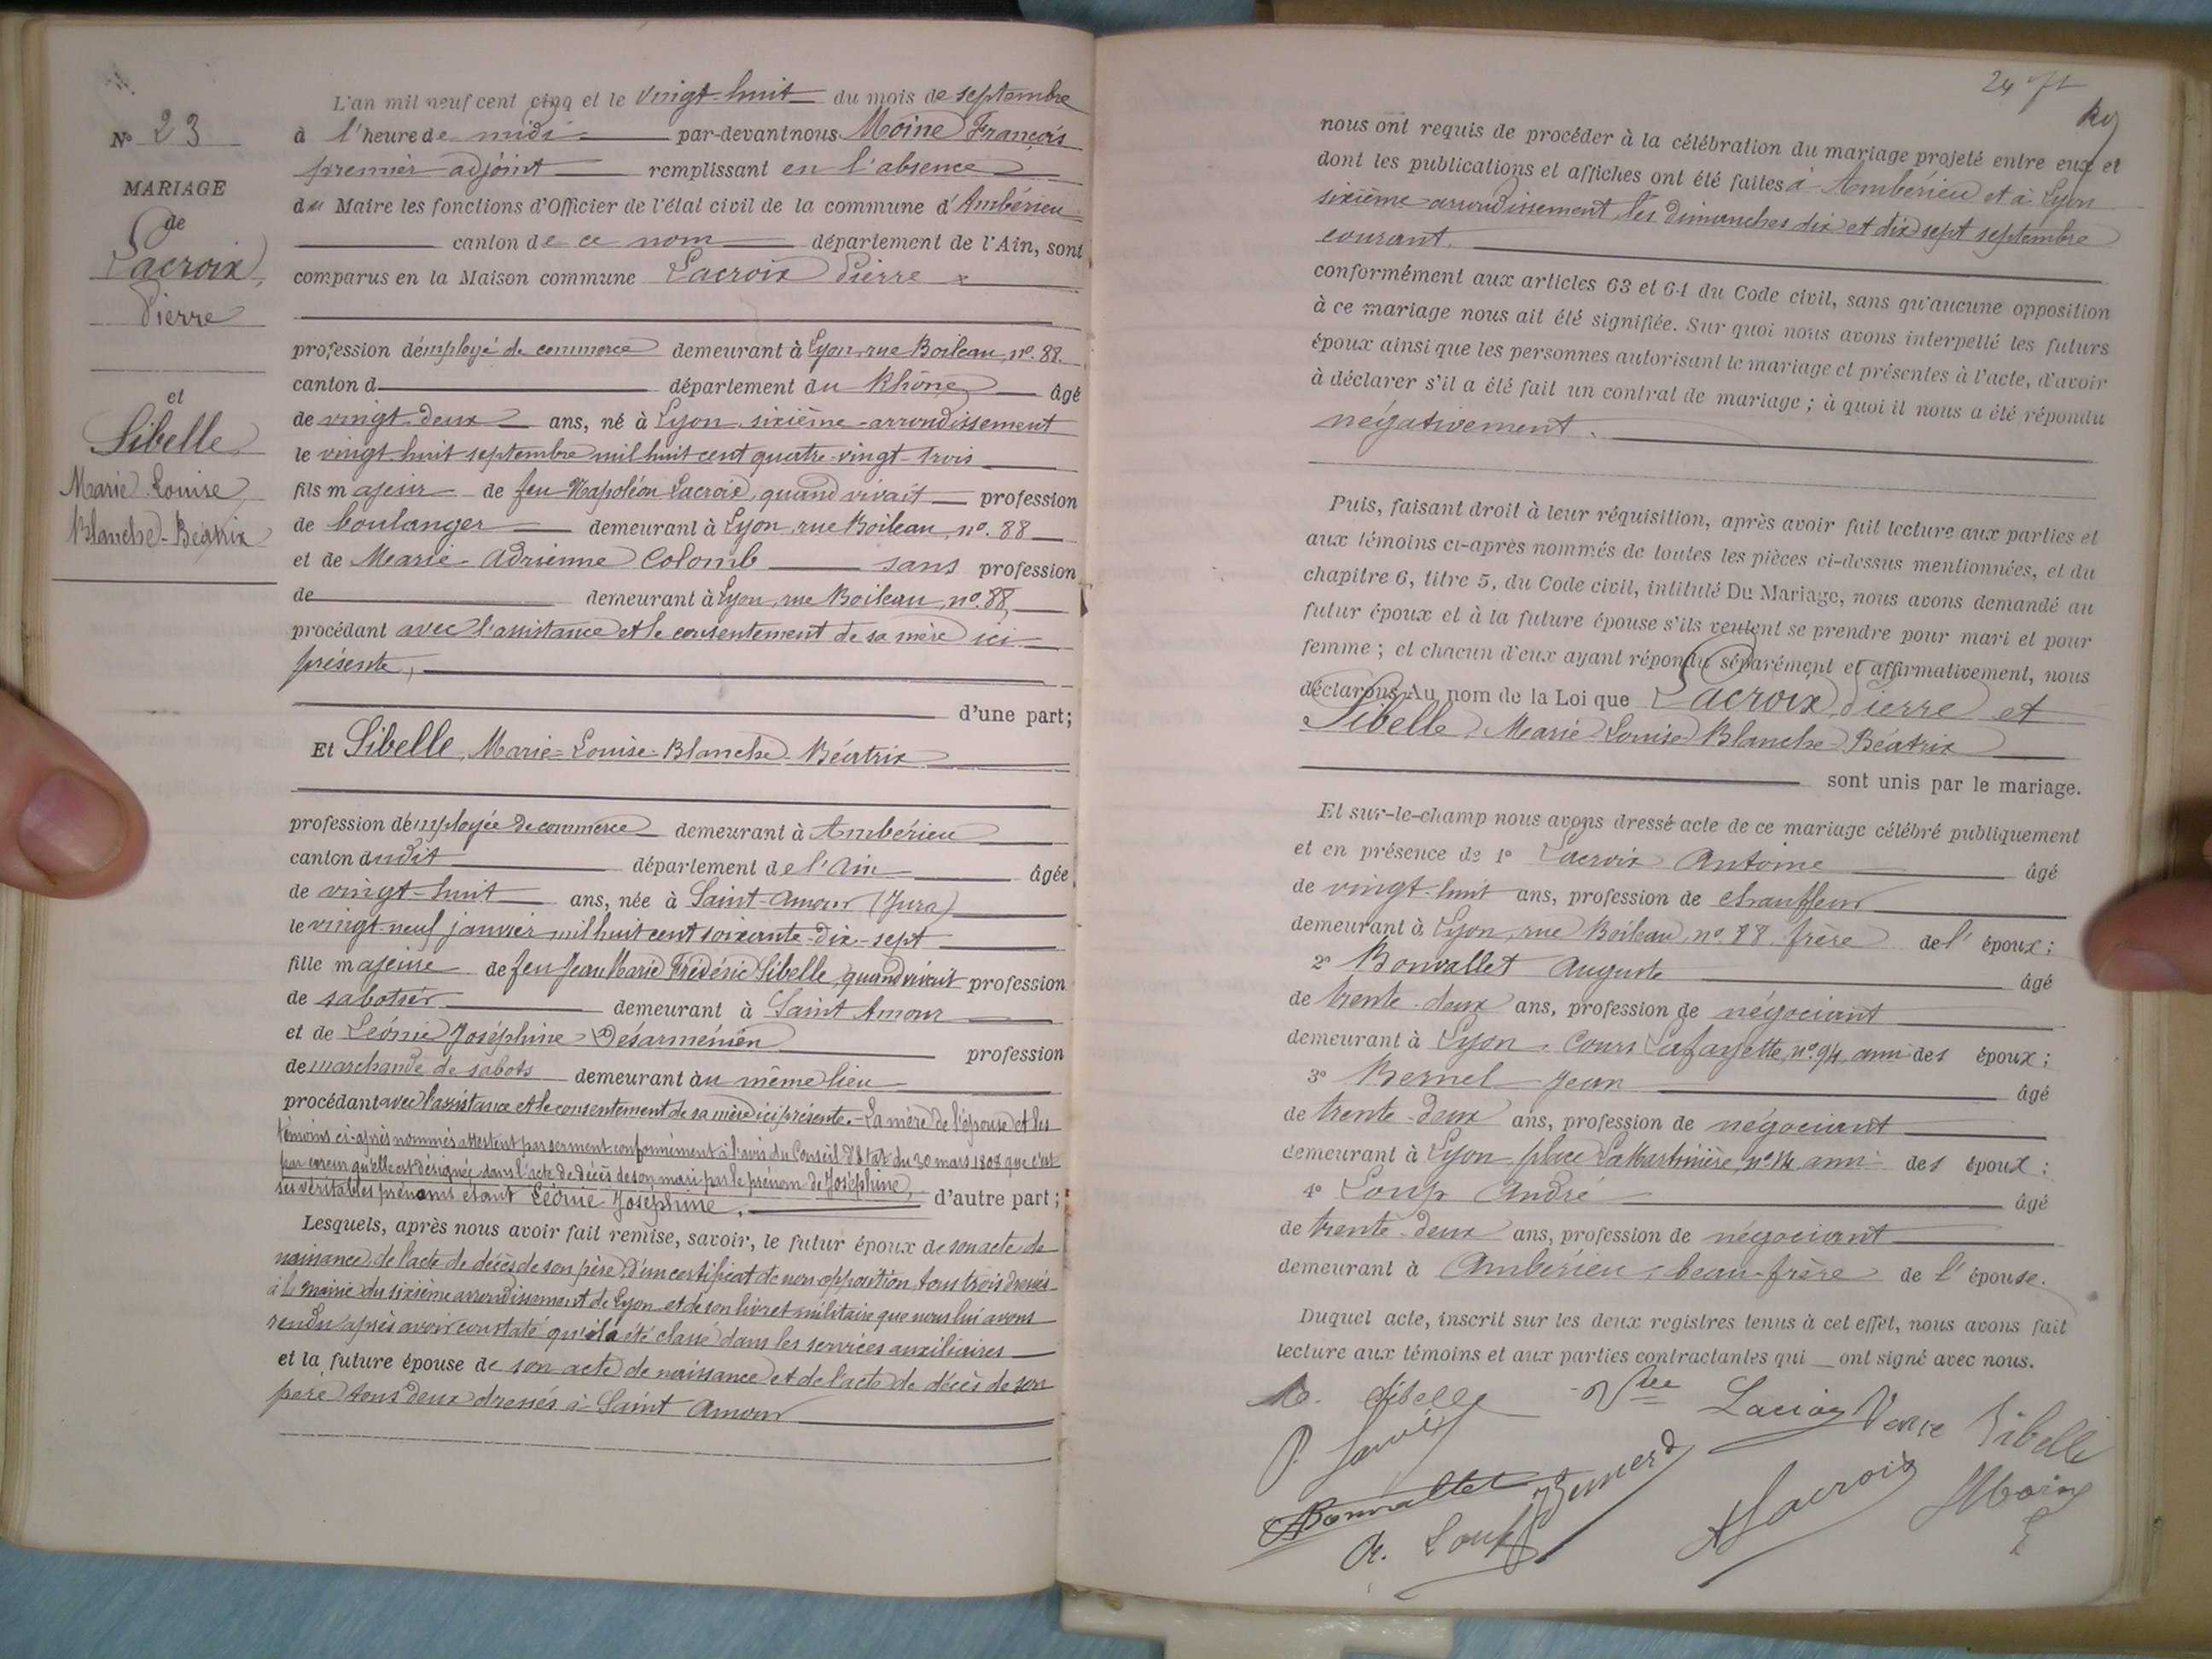 N° 23
MARIAGE
de
Lacroix,
Pierre
et
Sibelle
Marie-Louise
Blanche-Béatrix
L'an mil neuf cent cinq et le vingt-huit du mois de septembre
à l'heure de midi par-devant nous Moine François
premier adjoint remplissant en l'absence
du Maire les fonctions d'Officier de l'état civil de la commune d'Ambérieu
canton de ce nom département de l'Ain, sont
comparus en la Maison commune Lacroix Pierre
profession d'employé de commerce demeurant à Lyon, rue Boileau, n°. 88.
canton d département du Rhône âgé
de vingt-deux ans, né à Lyon, sixième arrondissement
le vingt-huit septembre mil huit cent quatre-vingt-trois
fils majeur de feu Napoléon Lacroix, quand vivait profession
de boulanger demeurant à Lyon, rue Boileau, n°. 88
et de Marie-Adrienne Colomb sans profession
de demeurant à Lyon, rue Boileau, n°. 88,
procédant avec l'assistance et le consentement de sa mère ici
présente,
d'une part;
Et Sibelle, Marie-Louise-Blanche-Béatrix
profession d'employée de commerce demeurant à Ambérieu
canton dudit département de l'Ain âgée
de vingt-huit ans, née à Saint-Amour (Jura)
le vingt-neuf janvier mil huit cent soixante-dix-sept
fille majeure de feu Jean Marie Frédéric Sibelle, quand vivait profession
de sabotier demeurant à Saint Amour
et de Léonie Joséphine Désarménien profession
de marchande de sabots demeurant au même lieu
procédant avec l'assistance et le consentement de sa mère ici présente.- La mère de l'épouse et les
témoins ci-après nommés attestent par serment conformément à l'avis du Conseil d'Etat du 30 mars 1808 que c'est
par erreur qu'elle est désignée dans l'acte de décès de son mari par le prénom de Joséphine,
ses véritables prénoms étant Léonie Joséphine, d'autre part;
Lesquels, après nous avoir fait remise, savoir, le futur époux de son acte de
naissance, de l'acte de décès de son père, d'un certificat de non opposition, tous trois dressés
à la mairie du sixième arrondissement de Lyon et de son livret militaire que nous lui avons
rendu après avoir constaté qu'il a été classé dans les services auxiliaires
et la future épouse de son acte de naissance et de l'acte de décès de son
père tous deux dressés à Saint Amour
24
nous ont requis de procéder à la célébration du mariage projeté entre eux et
dont les publications et affiches ont été faites à Ambérieu et à Lyon
sixième arrondissement, les dimanches dix et dix sept septembre
courant.
conformément aux articles 63 et 64 du Code civil, sans qu'aucune opposition
à ce mariage nous ait été signifiée. Sur quoi nous avons interpellé les futurs
époux ainsi que les personnes autorisant le mariage et présentes à l'acte, d'avoir
à déclarer s'il a été fait un contrat de mariage; à quoi il nous a été répondu
négativement.
Puis, faisant droit à leur réquisition, après avoir fait lecture aux parties et
aux témoins ci-après nommés de toutes les pièces ci-dessus mentionnées, et du
chapitre 6, titre 5, du Code civil, intitulé Du Mariage, nous avons demandé au
futur époux et à la future épouse s'ils veulent se prendre pour mari et pour
femme; et chacun d'eux ayant répondu séparément et affirmativement, nous
déclarons Au nom de la Loi que Lacroix Pierre et
Sibelle, Marie Louise Blanche Béatrix
sont unis par le mariage.
Et sur-le-champ nous avons dressé acte de ce mariage célébré publiquement
et en présence de 1° Lacroix Antoine âgé
de vingt-huit ans, profession de chauffeur
demeurant à Lyon, rue Boileau, n°. 88 frère de l'époux;
2° Bonvallet Auguste âgé
de trente-deux ans, profession de négociant
demeurant à Lyon, cours Lafayette, n° 94, ami des époux;
3° Bernel Jean âgé
de trente-deux ans, profession de négociant
demeurant à Lyon, place La Martinière, n° 14 ami des époux;
4° Loup André âgé
de trente-deux ans, profession de négociant
demeurant à Ambérieu, beau-frère de l'épouse.
Duquel acte, inscrit sur les deux registres tenus à cet effet, nous avons fait
lecture aux témoins et aux parties contractantes qui ont signé avec nous.
Sibelle Vve Lacroix Veuve Sibelle
Bonvallet
A. Loup
A Lacroix
Moine